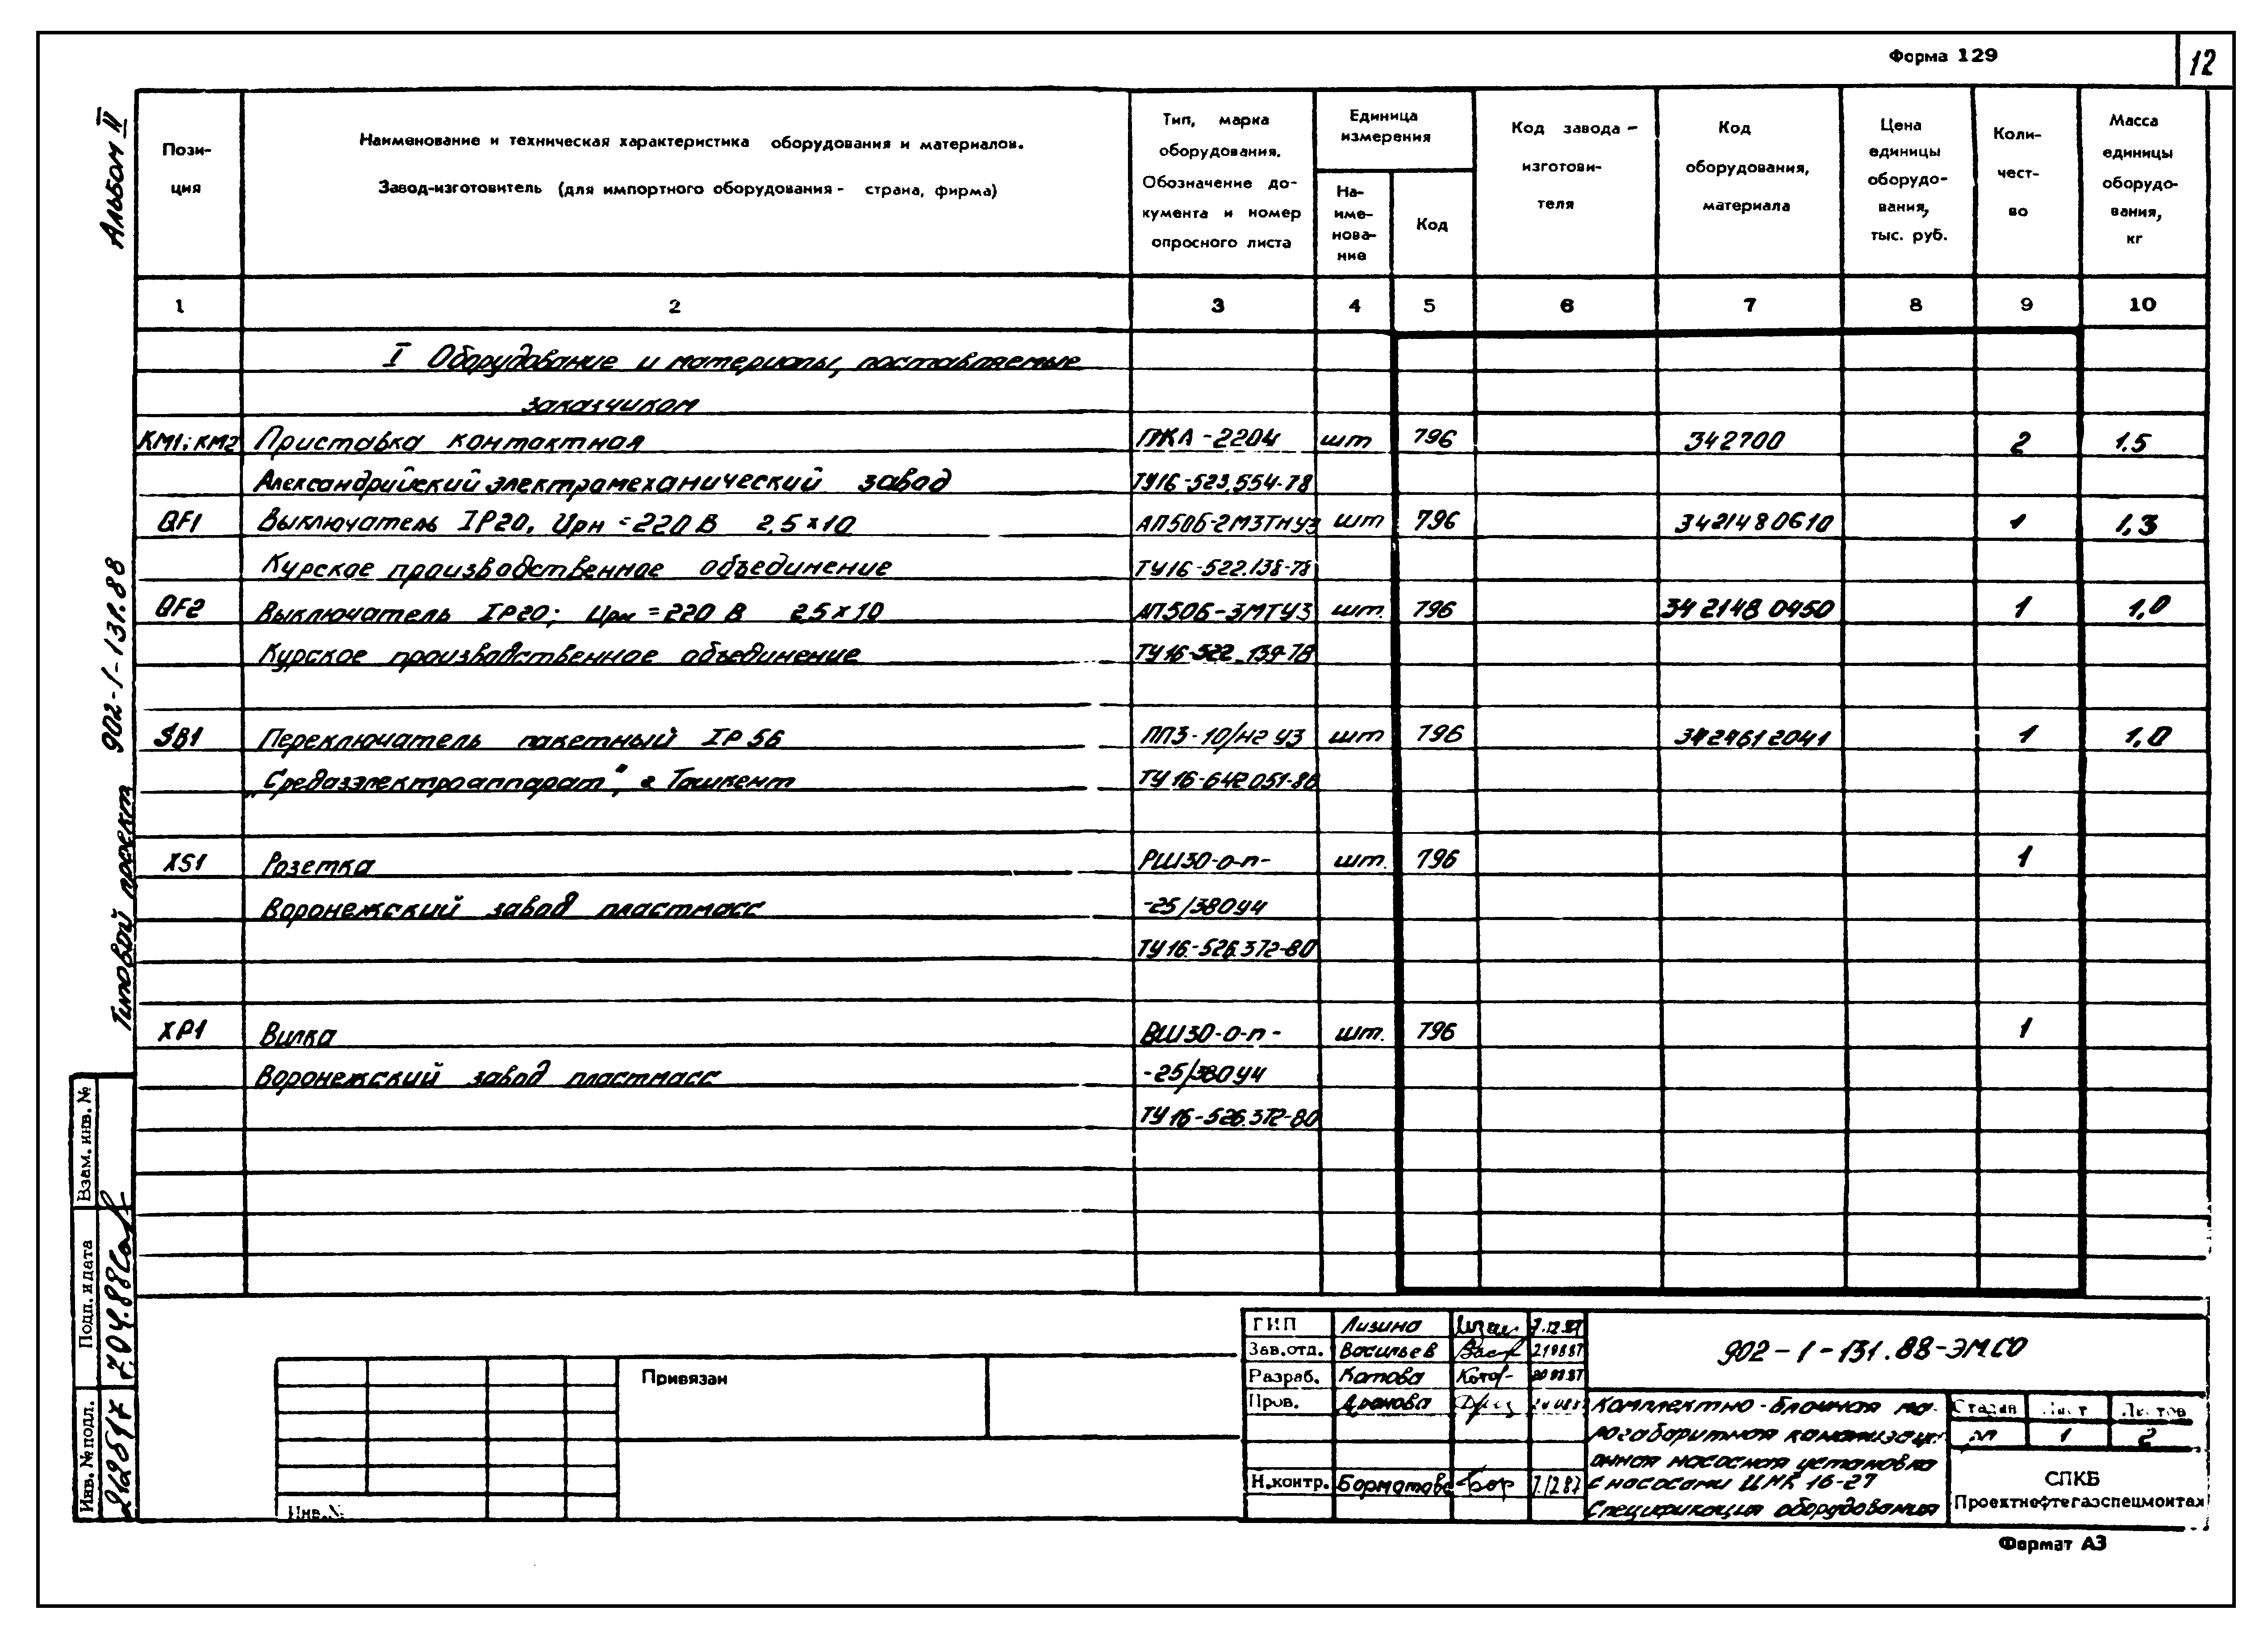 Форма 129
12
Альбом II
Пози-
ция
Наименование и техническая характеристика оборудования и материалов.
Завод-изготовитель (для импортного оборудования - страна, фирма)
Тип, марка
оборудования.
Обозначение до-
кумента и номер
опросного листа
Единица
измерения
На-
име-
нова-
ние
Код
Код завода -
изготови-
теля
Код
оборудования,
материала
Цена
единицы
оборудо-
вания,
тыс. руб.
Коли-
чест-
во
Масса
единицы
оборудо-
вания,
кг
1 2 3 4 5 6 7 8 9 10
I Оборудование и материалы, поставляемые
заказчиком
КМ1; КМ2 Приставка контактная ПКЛ-2204 шт 796 342700 2 1.5
Александрийский электромеханический завод ТУ16-523.554-78
QF1 Выключатель IP20, Uрн =220 В 2,5×10 АП50Б-2МЗТНУЗ шт 796 3421480610 1 1,3
Курское производственное объединение ТУ16-522.138-78
QF2 Выключатель IP20; Uрн =220 В 2,5×10 АП50Б-3МТУЗ шт. 796 3421480450 1 1,0
Курское производственное объединение ТУ16-522.139-78
SB1 Переключатель пакетный IP 56 ПП3-10/н2 У3 шт 796 3424612041 1 1,0
„Средазэлектроаппарат", г Ташкент ТУ16-642.051-86
XS1 Розетка РШ30-0-П- шт. 796 1
Воронежский завод пластмасс -25/380У4
ТУ16-526.372-80
XP1 Вилка ВШ30-0-П- шт. 796 1
Воронежский завод пластмасс -25/380У4
ТУ16-526.372-80
Типовой проект 902-1-131.88
Взам. инв. №
Подп. и дата
7.04.88
Инв. № подл.
Привязан
Инв. №
ГИП Лизина 7.12.87
Зав.отд. Васильев
Разраб. Котова
Пров. Дронова
Н.контр. Борматова 7.12.87
902-1-131.88-ЭМ.СО
Комплектно-блочная ма-
логабаритная канализаци-
онная насосная установка
с насосами ЦМК 16-27
Спецификация оборудования
Стадия Лист Листов
РП 1 2
СПКБ
Проектнефтегазспецмонтаж
Формат А3